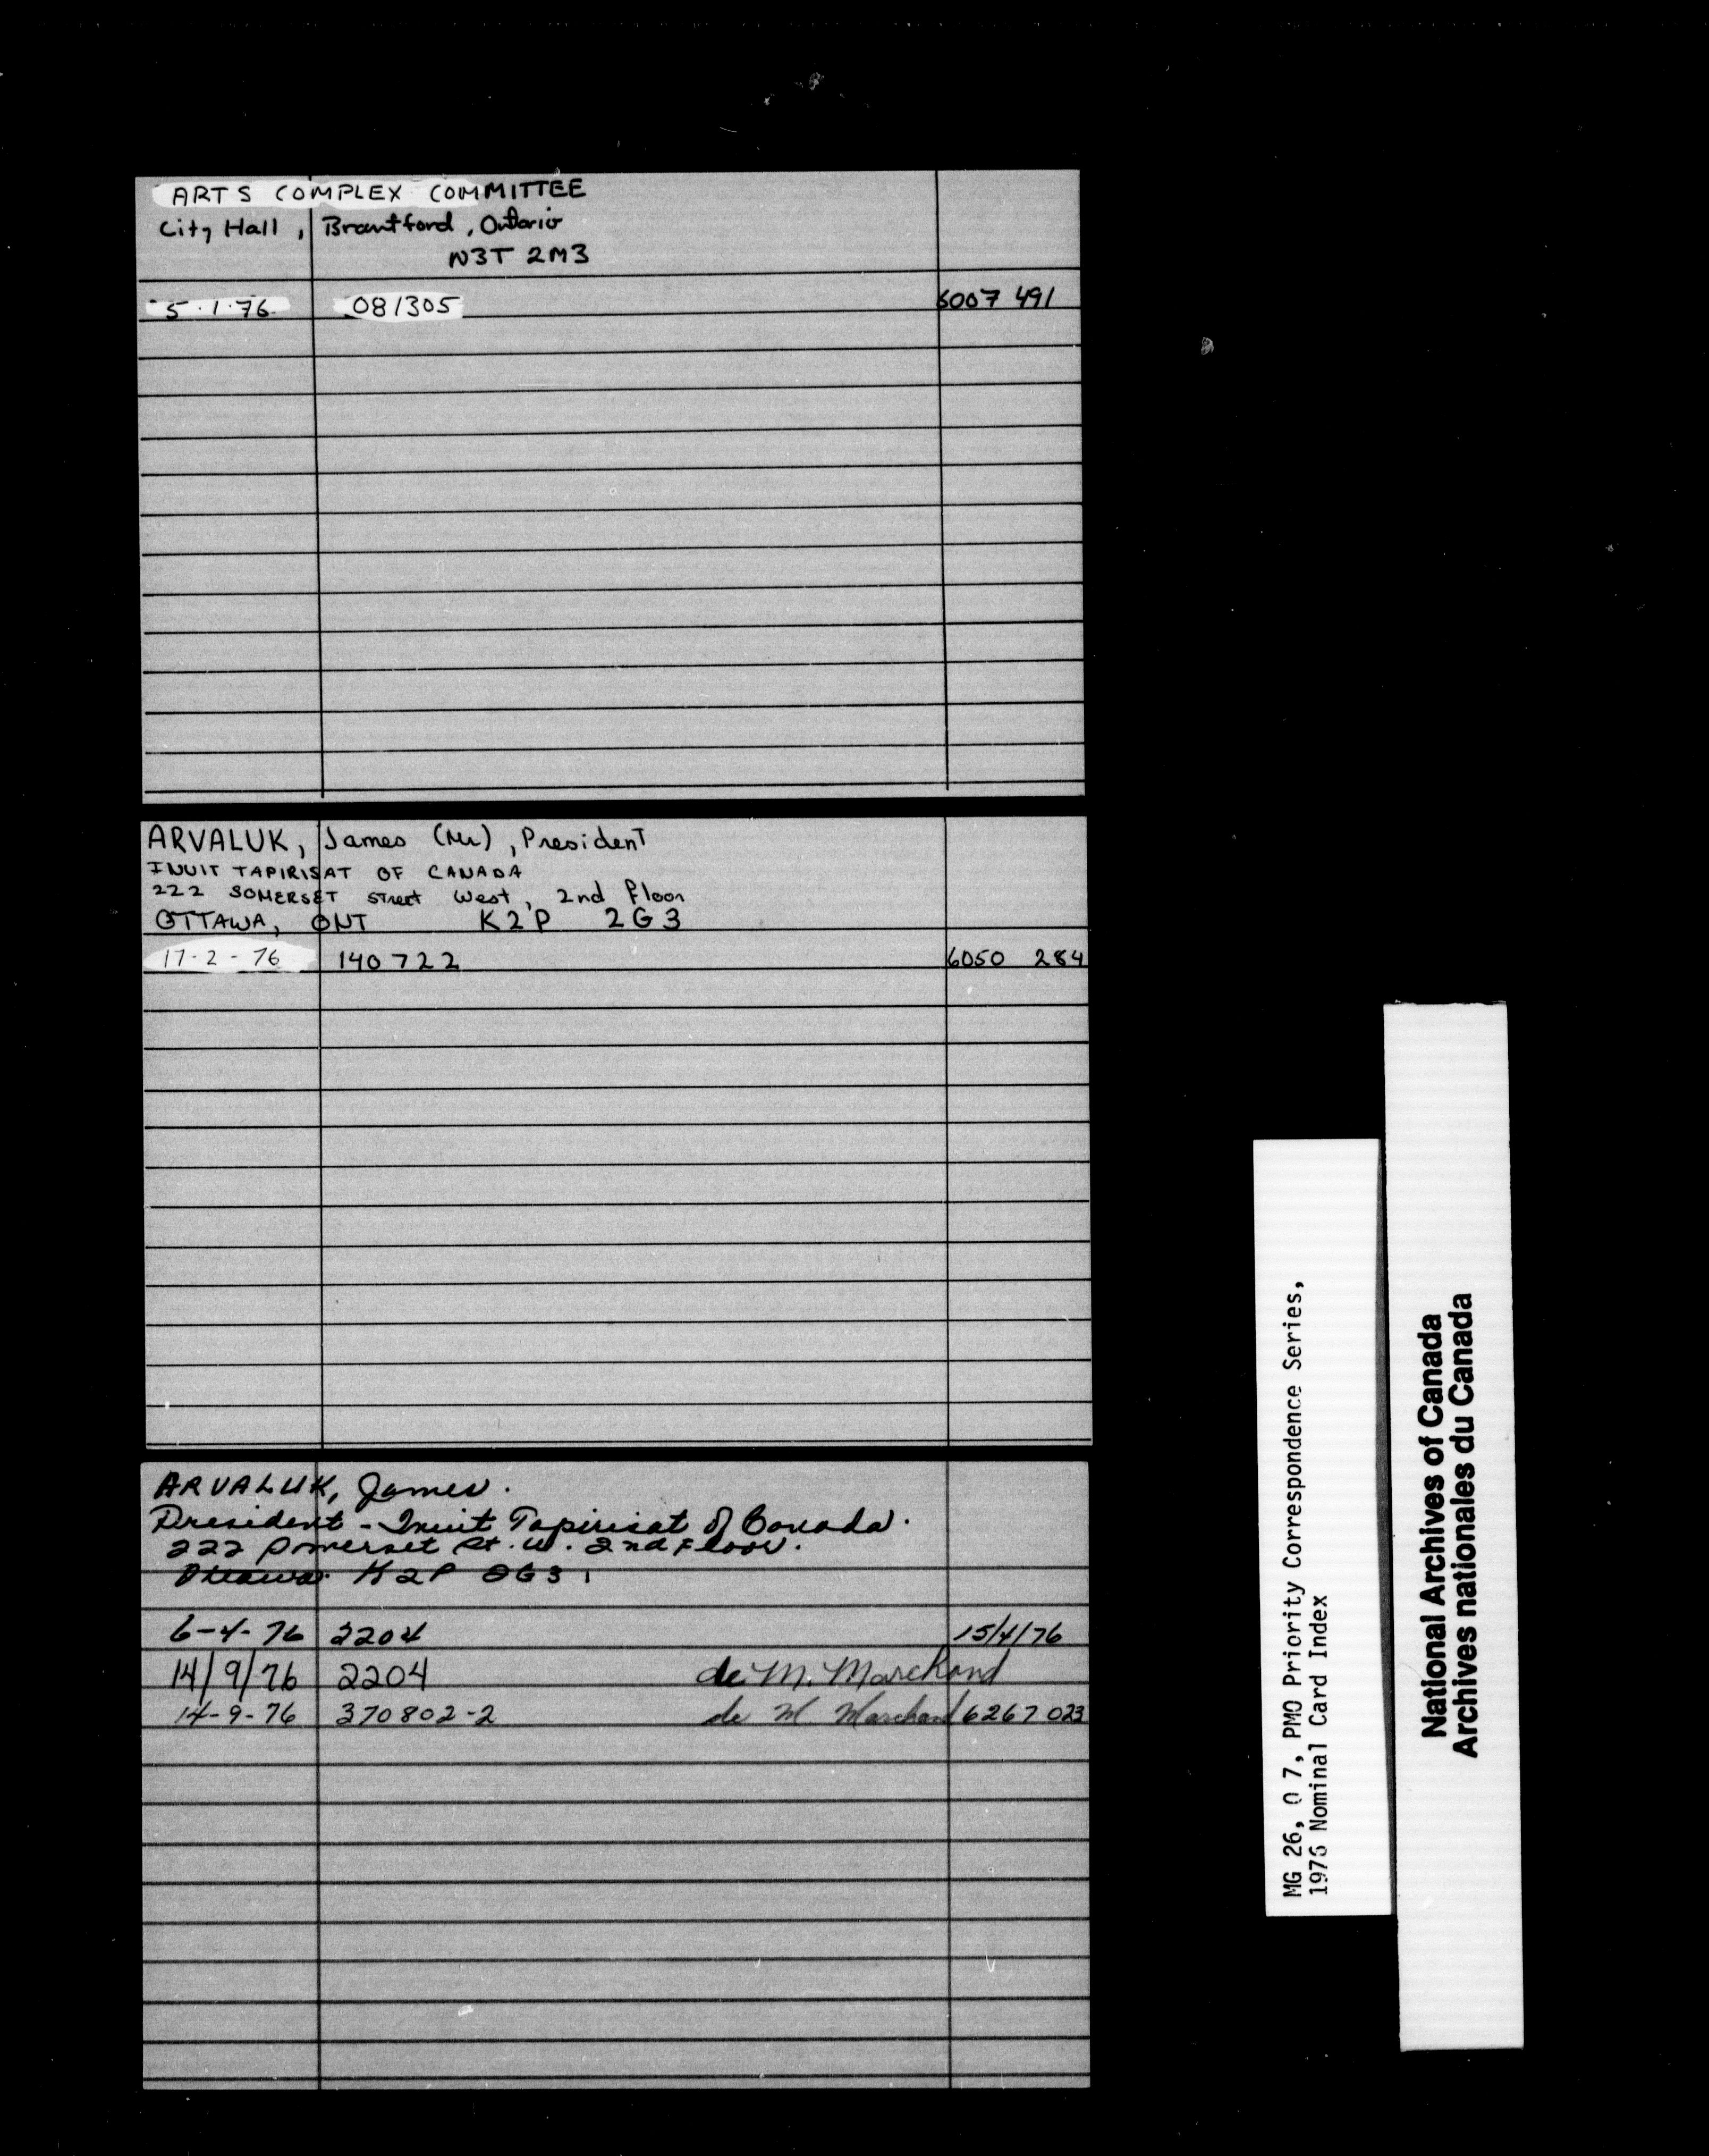 ARTS COMPLEX COMMITTEE
City Hall, Brantford, Ontario
N3T 2M3
5.1.76 081305 6007 491
ARVALUK, James (Mr), President
INUIT TAPIRISAT OF CANADA
222 SOMERSET Street West, 2nd Floor
OTTAWA, ONT K2P 2G3
17-2-76 140722 6050 284
ARVALUK, James.
President - Inuit Tapirisat of Canada.
222 Somerset St. W. 2nd Floor.
Ottawa K2P 2G3
6-4-76 2204 15/4/76
14/9/76 2204 de M. Marchand
14-9-76 370802-2 de M. Marchand 6267 023
MG 26, O 7, PMO Priority Correspondence Series,
1976 Nominal Card Index
National Archives of Canada
Archives nationales du Canada